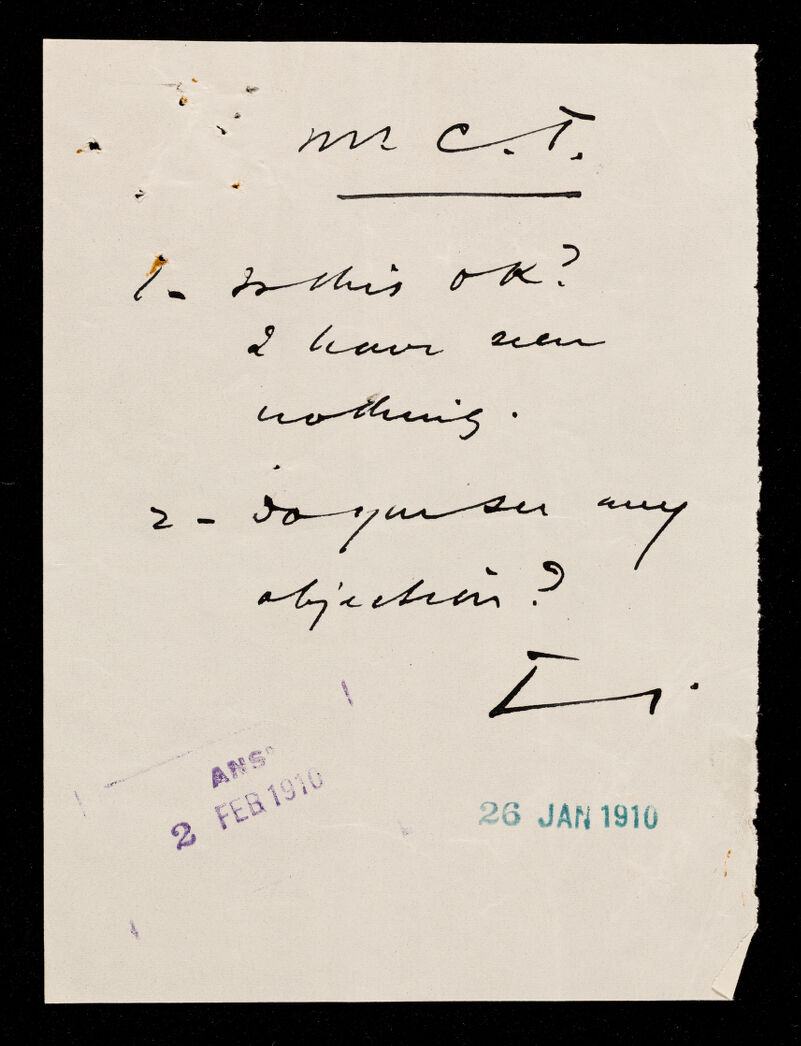 Mr C. T.
1 - Is this OK?
I have seen
nothing.
2 - Do you see any
objection?
ANSD
2 FEB 1910
26 JAN 1910